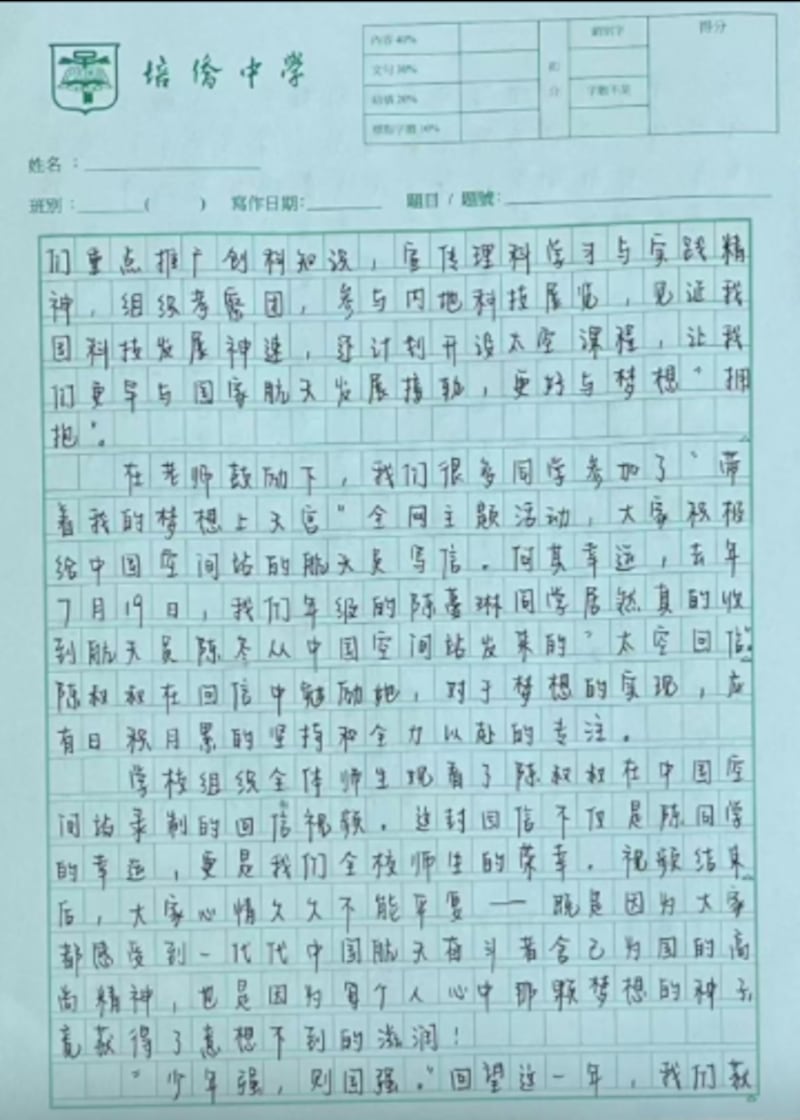 培僑中学
内容40%
文句30%
結構20%
標點字體10%
扣
分
錯別字
字數不足
得分
姓名：
班別：（　）　寫作日期：　題目 / 題號：
们重点推广创科知识，宣传理科学习与实践精
神，组织考察团，参与内地科技展览，见证我
国科技发展神速，还计划开设太空课程，让我
们更早与国家航天发展接轨，更好与梦想“拥
抱”。
在老师鼓励下，我们很多同学参加了“带
着我的梦想上天宫”全网主题活动，大家积极
给中国空间站的航天员写信。何其幸运，去年
7月19日，我们年级的陈蔓琳同学居然真的收
到航天员陈冬从中国空间站发来的“太空回信”。
陈叔叔在回信中勉励她，对于梦想的实现，应
有日积月累的坚持和全力以赴的专注。
学校组织全体师生观看了陈叔叔在中国空
间站录制的回信视频。这封回信不仅是陈同学
的幸运，更是我们全校师生的荣幸。视频结束
后，大家心情久久不能平复——既是因为大家
都感受到一代代中国航天奋斗者舍己为国的高
尚精神，也是因为每个人心中那颗梦想的种子，
竟获得了意想不到的滋润！
“少年强，则国强。”回望这一年，我们获